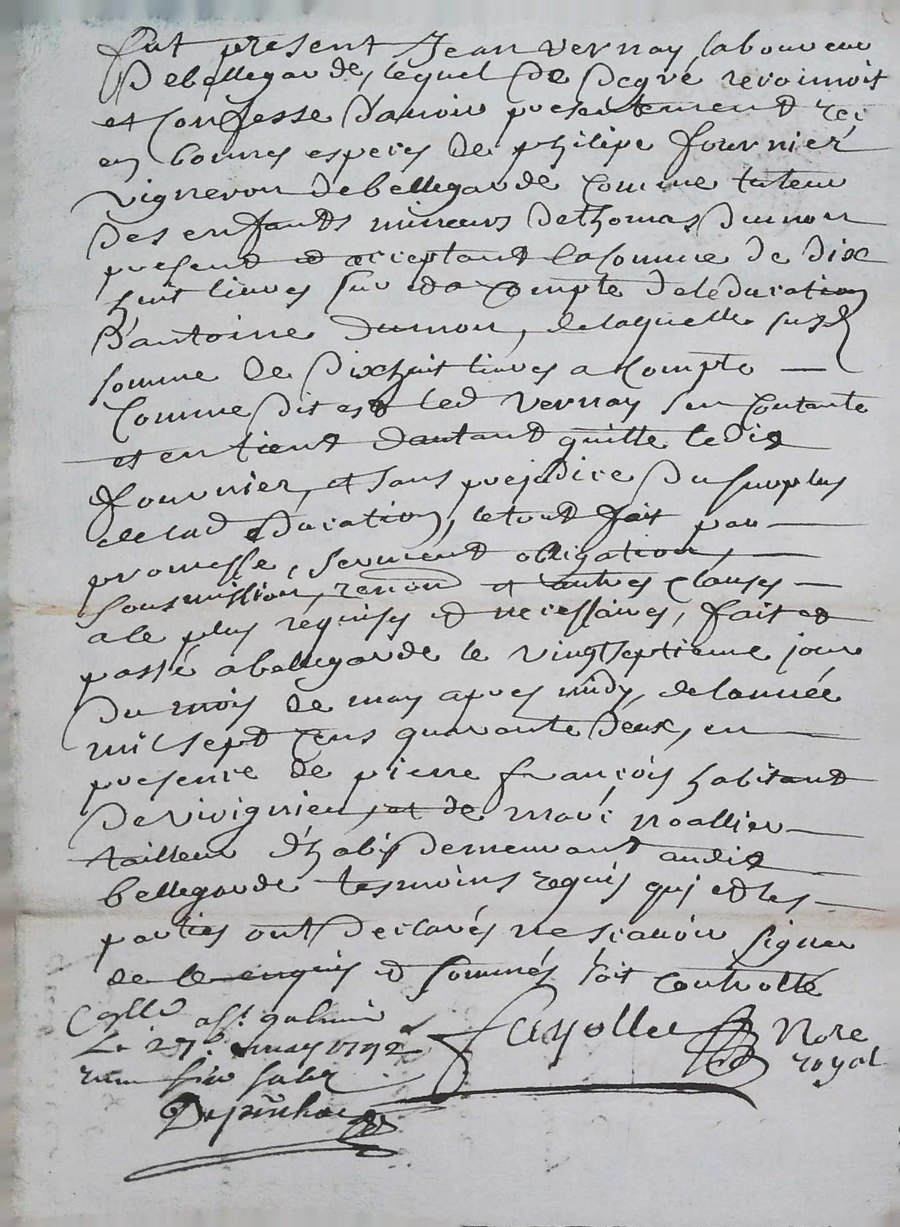 fut present Jean vernay laboureur
De bellegarde, lequel De Degré reconnoit
et Confesse D'auoir presentement recu
en bonnes especes de philipe fournier
vigneron De bellegarde Comme tuteur
Des enfants mineurs De thomas Dumon
present et acceptant la somme de dix
huit liures sur et a Compte De leducation
D'antoine Dumon, de laquelle susd
somme de Dix huit liures a Compte
Comme Dit est led vernay sen Contante
et en tient D'autant quitte ledit
fournier, et sans prejudice Du surplus
de lad education, le tout fait par
promesse, serment obligation,
soumission, renon et autres clauses
a le plus requises et necessaires, fait et
passé a bellegarde le vingt septieme jour
Du mois de may apres midy, de l'année
mil sept Cens quarante Deux, en
presence de pierre françois habitant
De vivignieu, et de marc noallier
tailleur d'habis Demeurant audit
bellegarde tesmoins requis qui et les
parties ont Declarés ne scauoir signer
de ce enquis et sommés soit Controllé
Collé a st galmier
Le 27e may 1742
Fayolle Nore
royal